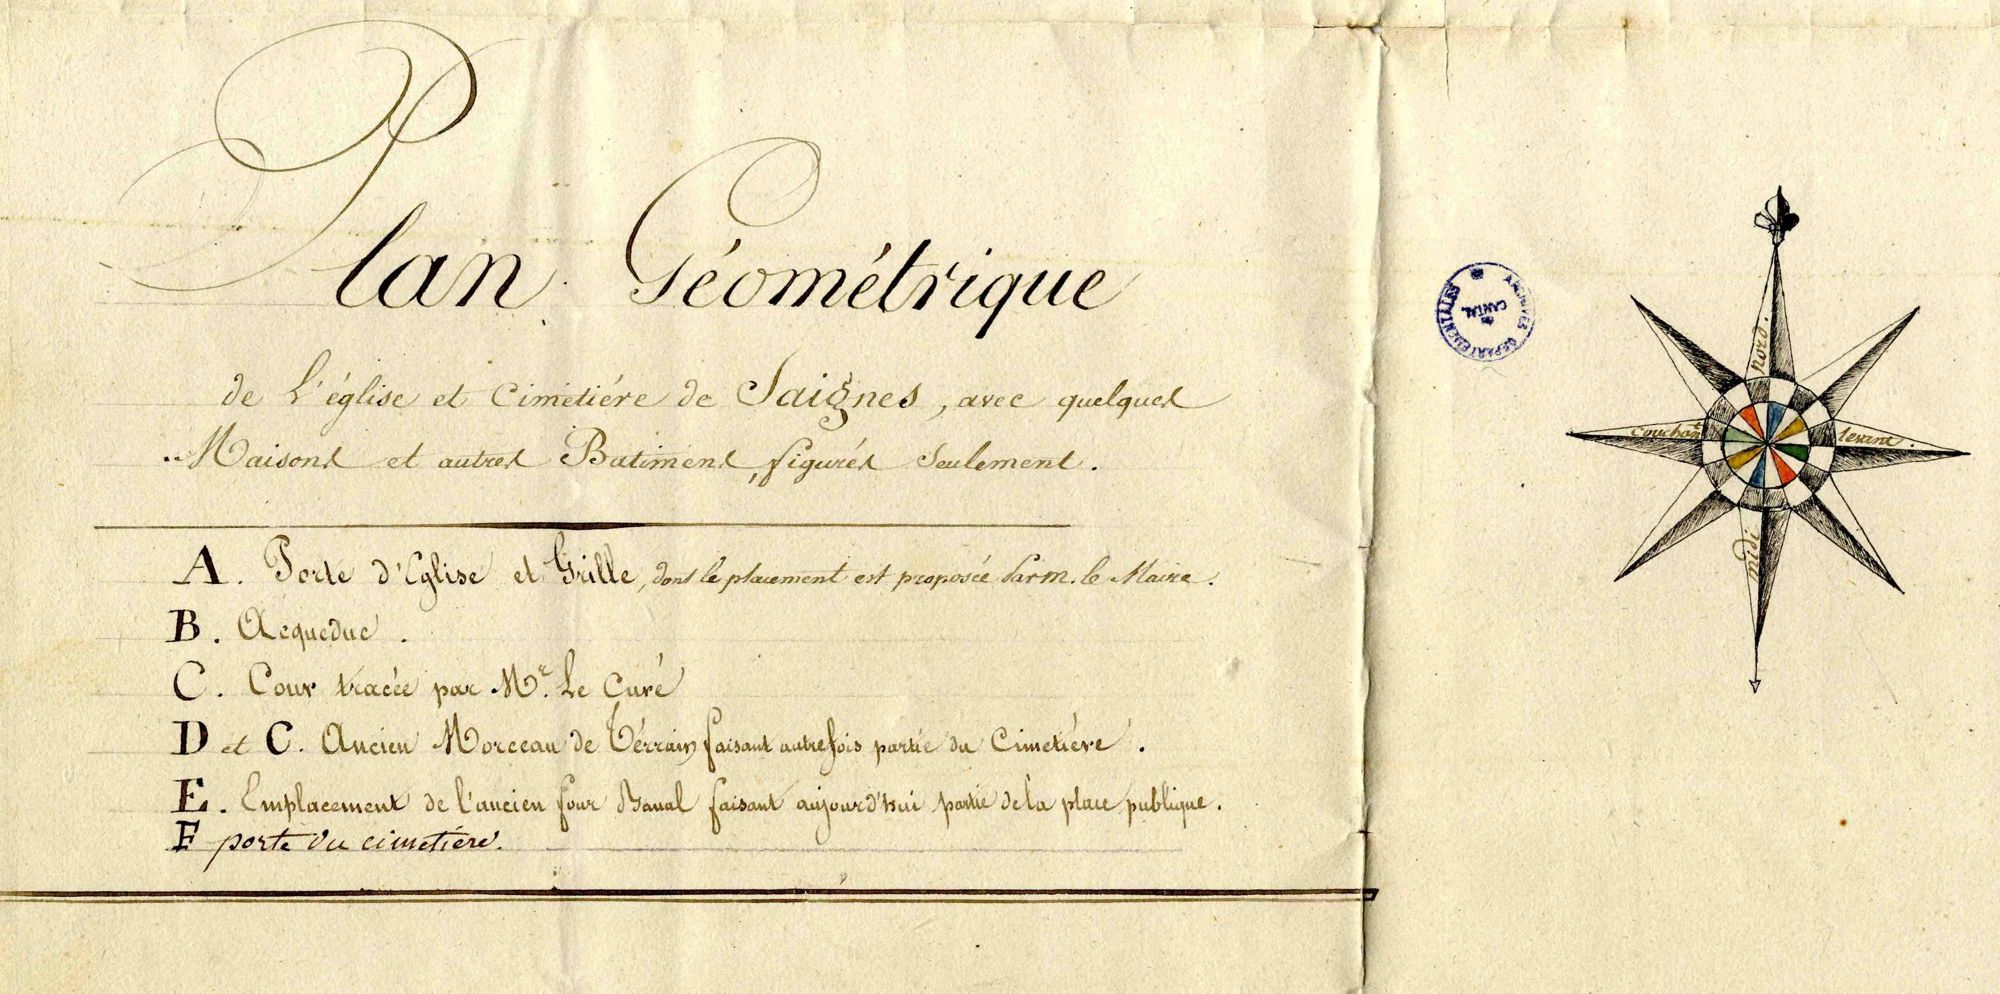 Plan Géométrique
de L'église et Cimetiére de Saignes, avec quelques
Maisons et autres Batimens, figurés Seulement.
A. Porte d'Eglise et Grille, dont le placement est proposée Par m. le Maire.
B. Acqueduc.
C. Cour tracée par Mr. Le Curé
D et C. Ancien Morceau de Térrain, faisant autrefois partie du Cimetière.
E. Emplacement de l'ancien four Banal faisant aujourd'hui partie de la place publique.
F porte du cimetiére.
ARCHIVES DÉPARTEMENTALES
du
CANTAL
nord.
couchant
levant.
midi